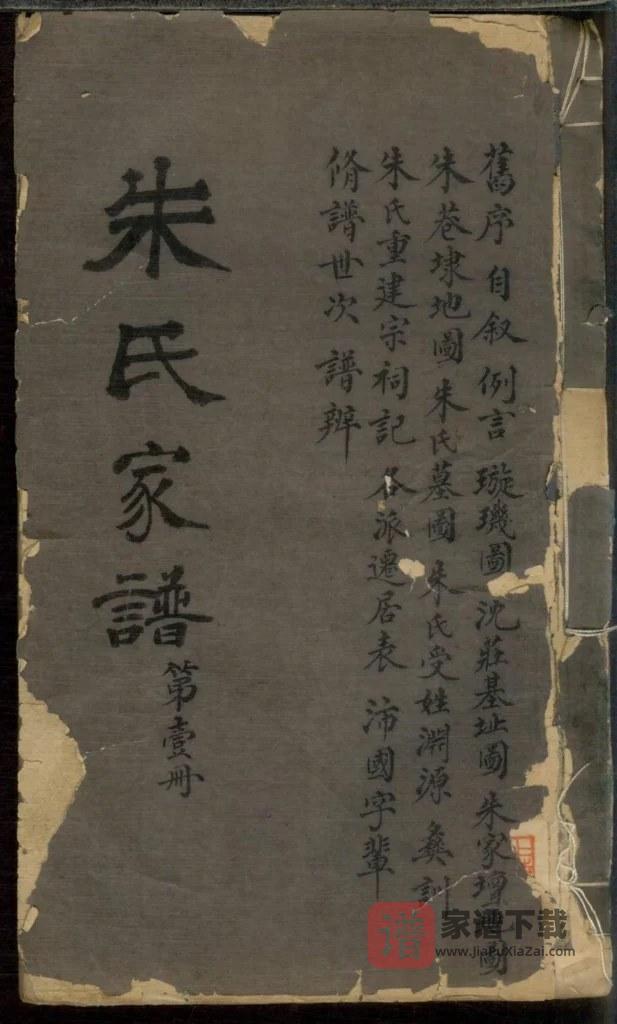 舊序 自叙 例言 璇璣圖 沈莊基址圖 朱家壇地圖
朱巷埭地圖 朱氏墓圖 朱氏受姓淵源 彝訓
朱氏重建宗祠記 各派遷居表 沛國字輩
脩譜世次 譜辨
朱氏家譜
第壹冊
谱 家谱下载
www.JiaPuXiaZai.com